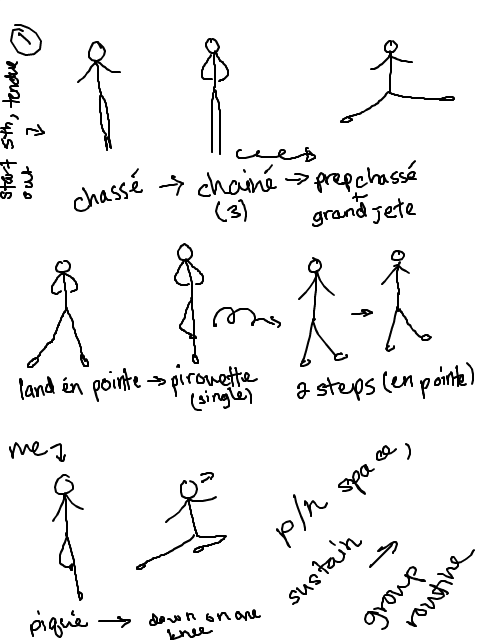 1
start 5th, tendue
out
chassé → chainé → prep chassé
(3)
+
grand jete
land en pointe → pirouette
(single)
2 steps (en pointe)
me
piquie → down on one
knee
p/n space,
sustain →
group
routine